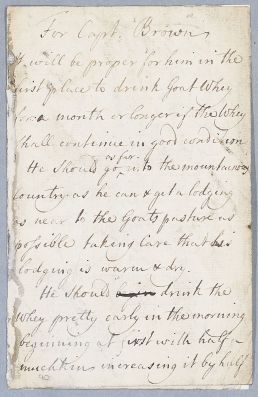 For Capt. Brown
It will be proper for him in the
first place to drink Goat Whey
for a month or longer if the Whey
shall continue in good condition
He should go as far into the mountainous
country as he can & get a lodging
as near to the Goats pasture as
possible taking Care that his
lodging is warm & dry.
He should drink the
Whey pretty early in the morning
beginning at first with half a
mutchkin increasing it by half